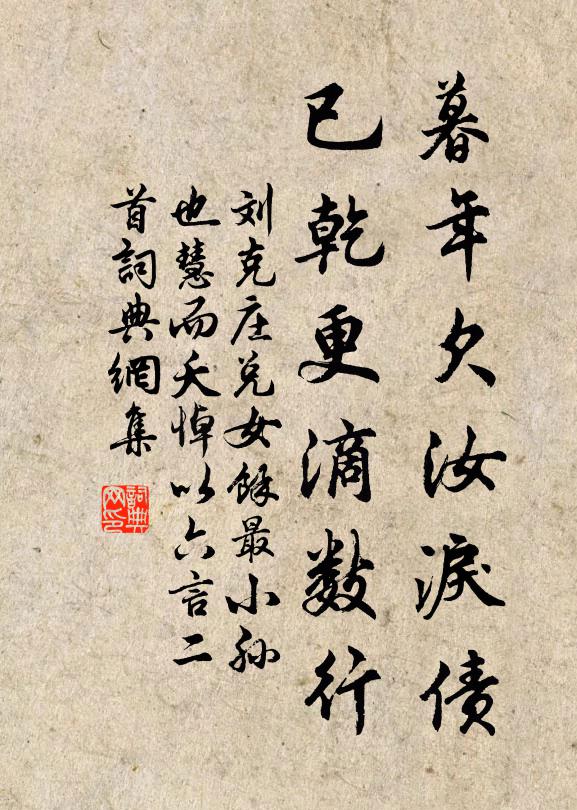 暮年欠汝淚債
已乾更滴數行
刘克庄兑女餘最小孙
也慧而夭悼以六言二
首詞典網集
詞典网印